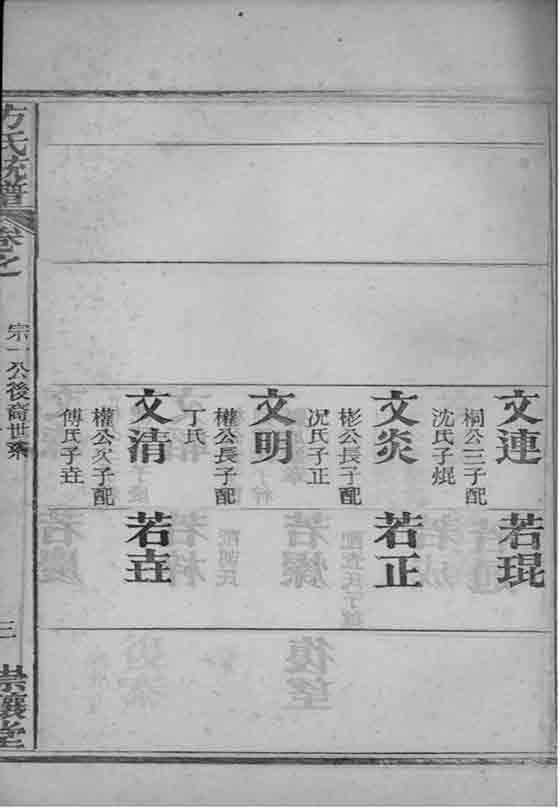 文連
桐公三子配
沈氏子焜
文炎
彬公長子配
况氏子正
文明
權公長子配
丁氏
文清
權公次子配
傅氏子垚
若琨
若正
若垚
方氏統譜
卷之
宗一公後裔世系
三
崇讓堂